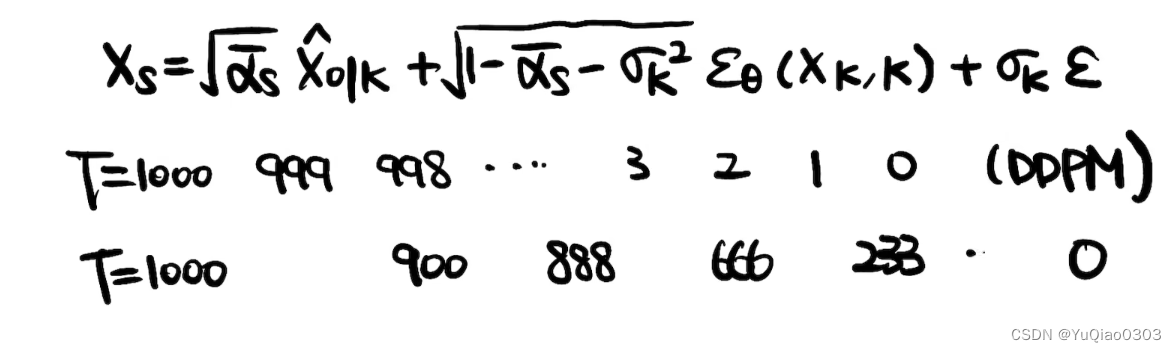 Xₛ=√ᾱₛ X̂₀|ₖ + √1-ᾱₛ-σₖ² εθ (Xₖ,K) + σₖ ε
T=1000 999 998 ···· 3 2 1 0 (DDPM)
T=1000 900 888 666 233 ·· 0
CSDN @YuQiao0303